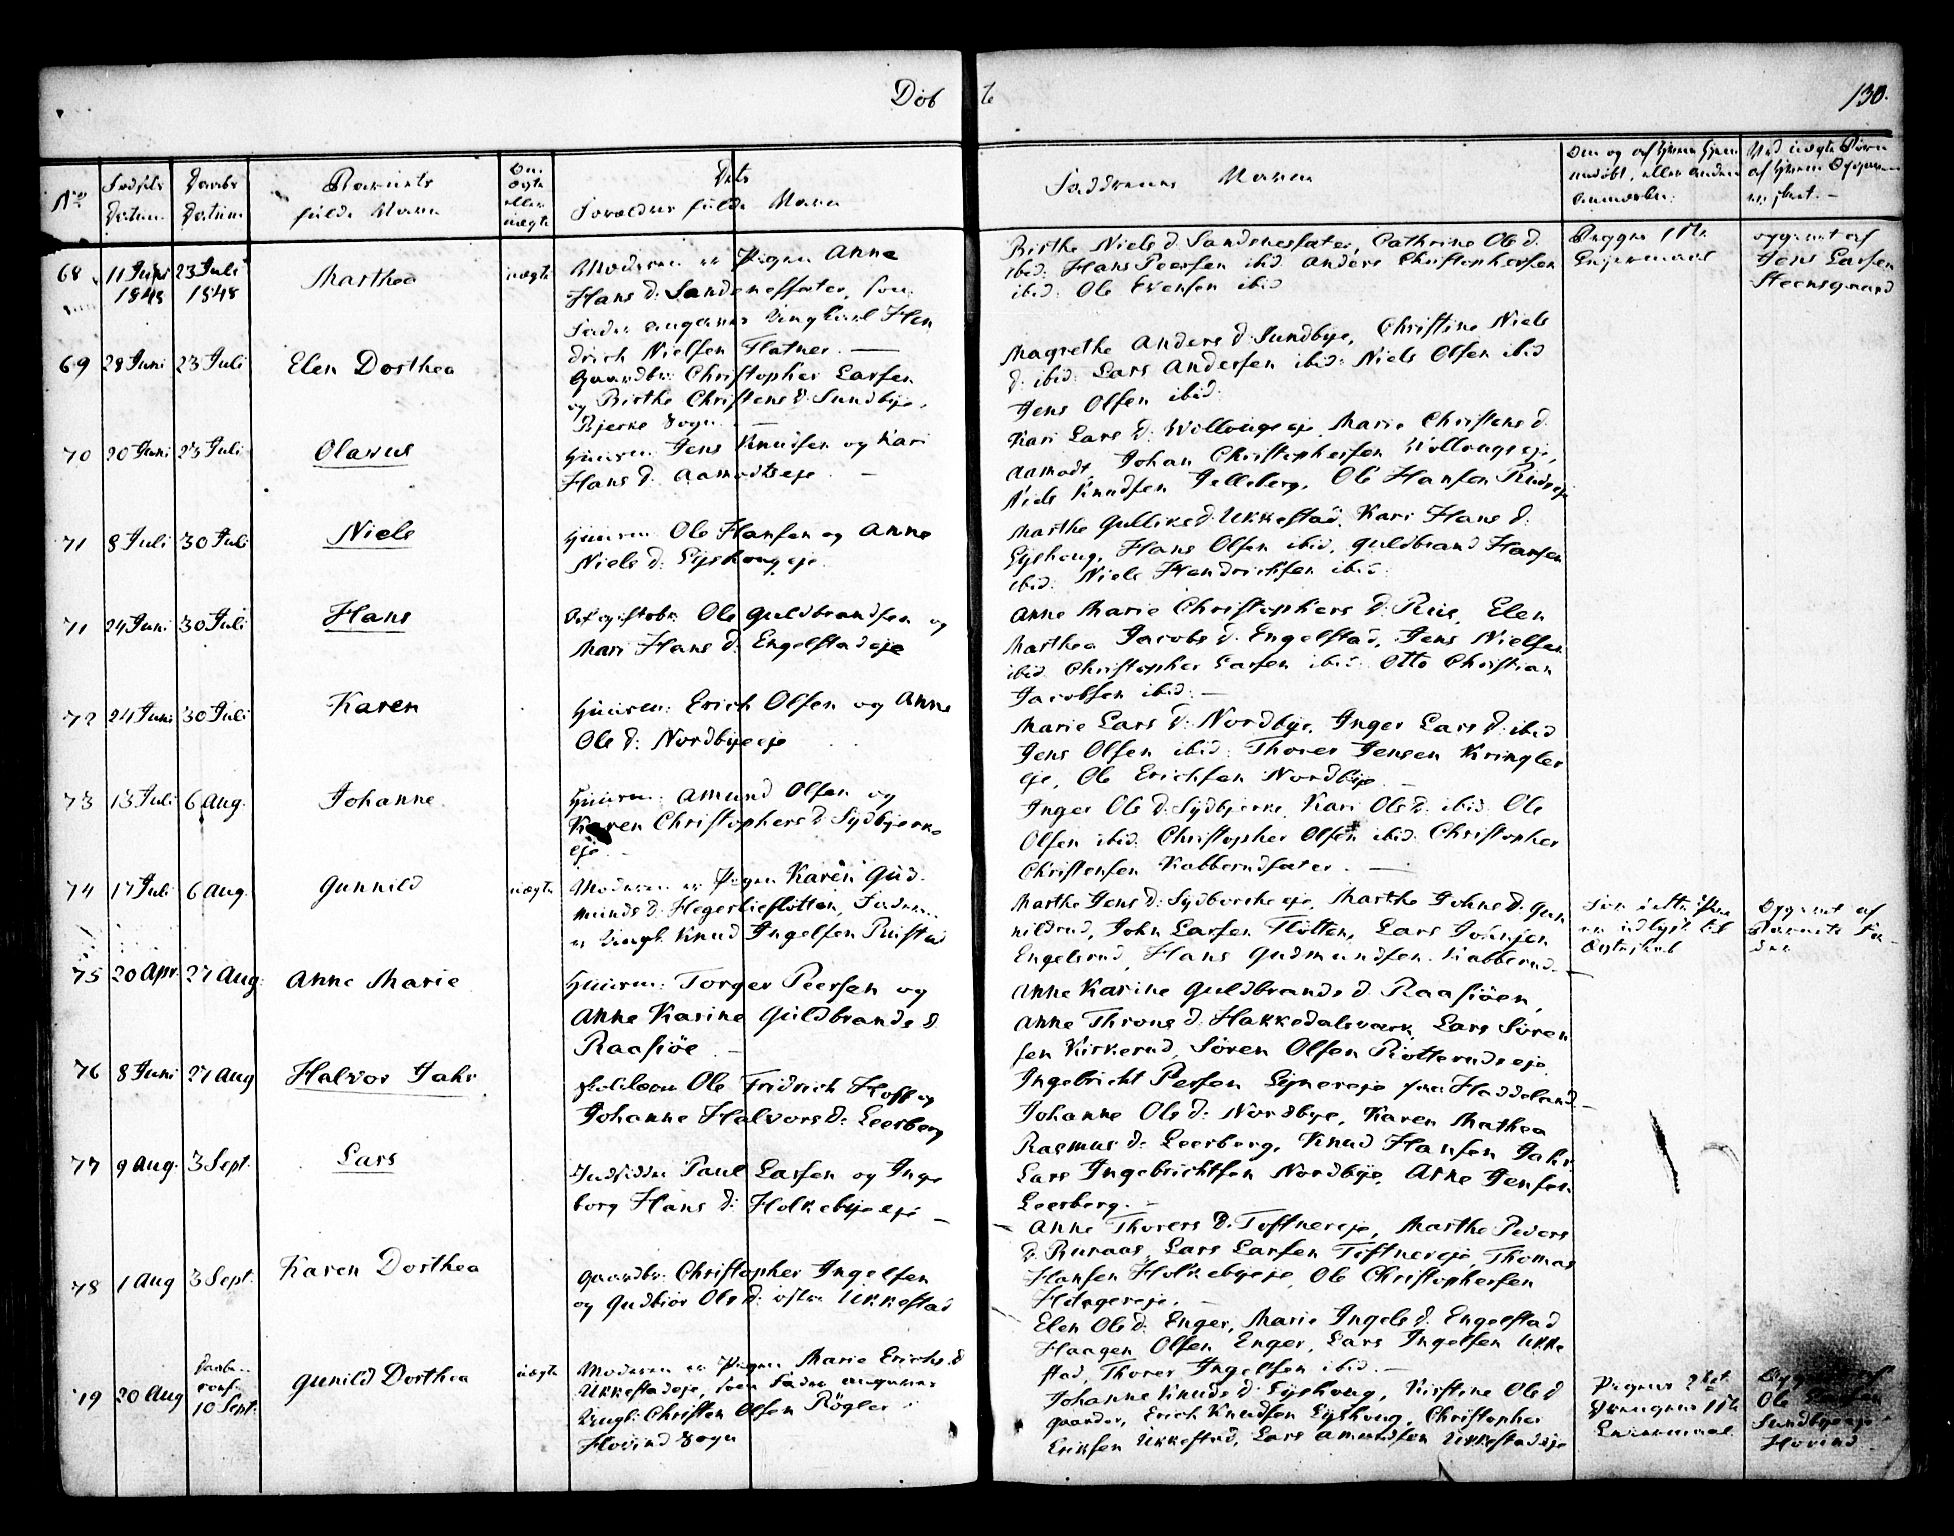 Døb
te
130.
No
Fødsels Datum
Daabs Datum
Barnets fulde Navn
Om Ægte eller uægte
Dets Forældres fulde Navn
Faddrenes Navne
68 11 Juni 1848 23 Juli 1848 Marthea uægte
Moderen er Pigen Anne
Hans d: Sandenessæter, som
Fader angives Ungkarl Hen
drich Nielsen Flatner. —
Birthe Niels d. Sandenessæter, Cathrine Ole d.
ibid: Hans Peersen ibid. Anders Christophersen
ibid: Ole Evensen ibid
Jens Larsen
Steensgaard
69 28 Juni 23 Juli Elen Dorthea
Gaardbr: Christopher Larsen
og Birthe Christens d. Sundbye,
Bjerke Sogn. —
Magrethe Anders d. Sundbye, Christine Niels
d. ibid: Lars Andersen ibid: Niels Olsen ibid
Jens Olsen ibid:
70 20 Juni 23 Juli Olavus
Huusm: Jens Knudsen og Kari
Hans d. Aamodtseje. —
Kari Lars d. Wollougseje, Marie Christens d.
Aamodt, Johan Christophersen Wollougseje,
Niels Knudsen Jelleberg, Ole Hansen
71 8 Juli 30 Juli Niels
Huusm: Ole Hansen og Anne
Niels d: Lyshougeje.
Marthe Gulliks d. Ukkestad, Kari Hans d.
Lyshoug, Hans Olsen ibid, Guldbrand Hansen
ibid: Niels Hendrichsen ibid:
71 24 Juni 30 Juli Hans
Ole Guldbrandsen og
Mari Hans d: Engelstadeje
Anne Marie Christophers d. Rue, Elen
Marthea Jacobs d. Engelstad, Jens Nielsen
ibid Christopher Larsen ibid: Otto Christian
Jacobsen ibid: —
72 24 Juni 30 Juli Karen
Huusm: Erich Olsen og Anne
Ole d: Nordbyeeje
Marie Lars d: Nordbye, Inger Lars d: ibid
Jens Olsen ibid: Thorer Jensen Kringler
eje, Ole Erichsen Nordbye —
73 13 Juli 6 Aug. Johanne
Huusm: Amund Olsen og
Karen Christophers d Sydbjerke
eje. —
Inger Ole d. Sydbjerke, Kari Ole d. ibid. Ole
Olsen ibid: Christopher Olsen ibid. Christopher
Christensen Kabberudsæter. —
74 17 Juli 6 Aug. Gunnild uægte
Moderen er Pigen Karen Gud
munds d. Hegerlieflotten, Faderen
er Ungk: Knud Ingelsen Rustad
Marthe Jens d: Sydborskeeje, Marthe Johns d. Gun
nildrud, John Larsen Flotten, Lars Johnsen
Engelsrud, Hans Gudmundsen Kabberud. —
75 20 Apr. 27 Aug: Anne Marie
Huusm: Torger Peersen og
Anne Karine Guldbrands d.
Raasiøe. —
Anne Karine Guldbrands d. Raasiøen,
Anne Throns d. Hakkedalsværk, Lars Søren
sen Kirkerud, Søren Olsen Rotterudseje
Ingebricht Persen Lynereje
76 8 Juni 27 Aug Halvor Jahr
Ole Fridrich Hoff og
Johanne Halvors d: Leerberg
Johanne Ole d: Nordbye, Karen Mathea
Rasmus d: Leerberg, Knud Hansen Jahr
Lars Ingebrichtsen Nordbye, Arne Jensen
Leerberg. —
77 9 Aug. 3 Sept. Lars
Paul Larsen og Inge
borg Hans d: Holkebyeeje —
Anne Thorers d. Toftnereje, Marthe Peders
d. Ruraas, Lars Larsen Toftnereje, Thomas
Hansen Holkebyeeje, Ole Christophersen
78 1 Aug 3 Sept. Karen Dorthea
Gaardbr: Christopher Ingelsen
og Gudbior Ole d: østre Ukkestad
Elen Ole d: Enger, Marie Ingels d. Engelstad
Haagen Olsen Enger, Lars Ingelsen Ukke
stad, Thorer Ingelsen ibid. —
79 20 Aug 10 Sept. Gunild Dorthea uægte
Moderen er Pigen Marie Erichs d
Ukkestadeje, som Fader angives
Ungk: Christen Olsen Røgler
Hovind Sogn
Johanne Knuds d: Lyshoug, Kirstine Ole d
Gaarder, Erich Knudsen Lyshoug, Christopher
Eriksen Ukkestad, Lars Amundsen Ukkestadeje
Ole Larsen
Sundbyeeje
Hovind